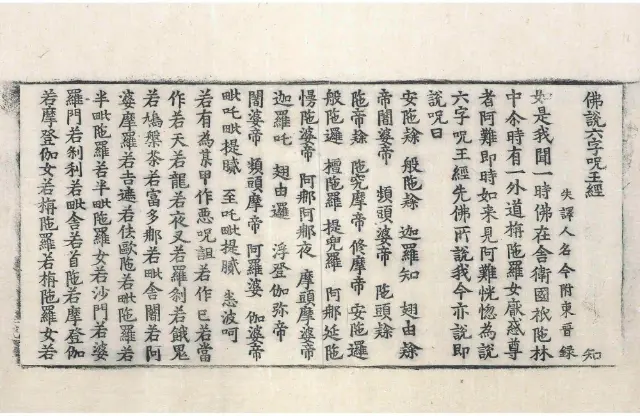 佛說六字呪王經
失譯人名今附東晉錄　知
如是我聞一時佛在舍衛國祇陁林
中尒時有一外道栴陁羅女厭惑尊
者阿難即時如来見阿難恍惚為說
六字呪王經先佛所說我今亦說即
說呪曰
安陁隸　般陁隸　迦羅知　翅由隸
帝闍婆帝　頻頭婆帝　陁頭隸
陁帝隸　陁究摩帝　修摩帝　安陁邏
般陁邏　檀陁羅　提兜羅　阿那延陁
愓陁婆帝　阿那阿那夜　摩頭摩婆帝
迦羅吒　翅由邏　浮登伽弥帝
闍婆帝　頻頭摩帝　阿羅婆　伽婆帝
毗吒毗提臓　至吒毗提臓　恚波呵
若有為某甲作惡呪詛若作已若當
作若天若龍若夜叉若羅刹若餓鬼
若鳩槃荼若富多那若毗舍闍若阿
婆摩羅若吉遮若佉歐陁若毗陁羅若
半毗陁羅若半毗陁羅女若沙門若婆
羅門若刹利若毗舍若首陁若摩登伽
若摩登伽女若栴陁羅若栴陁羅女若